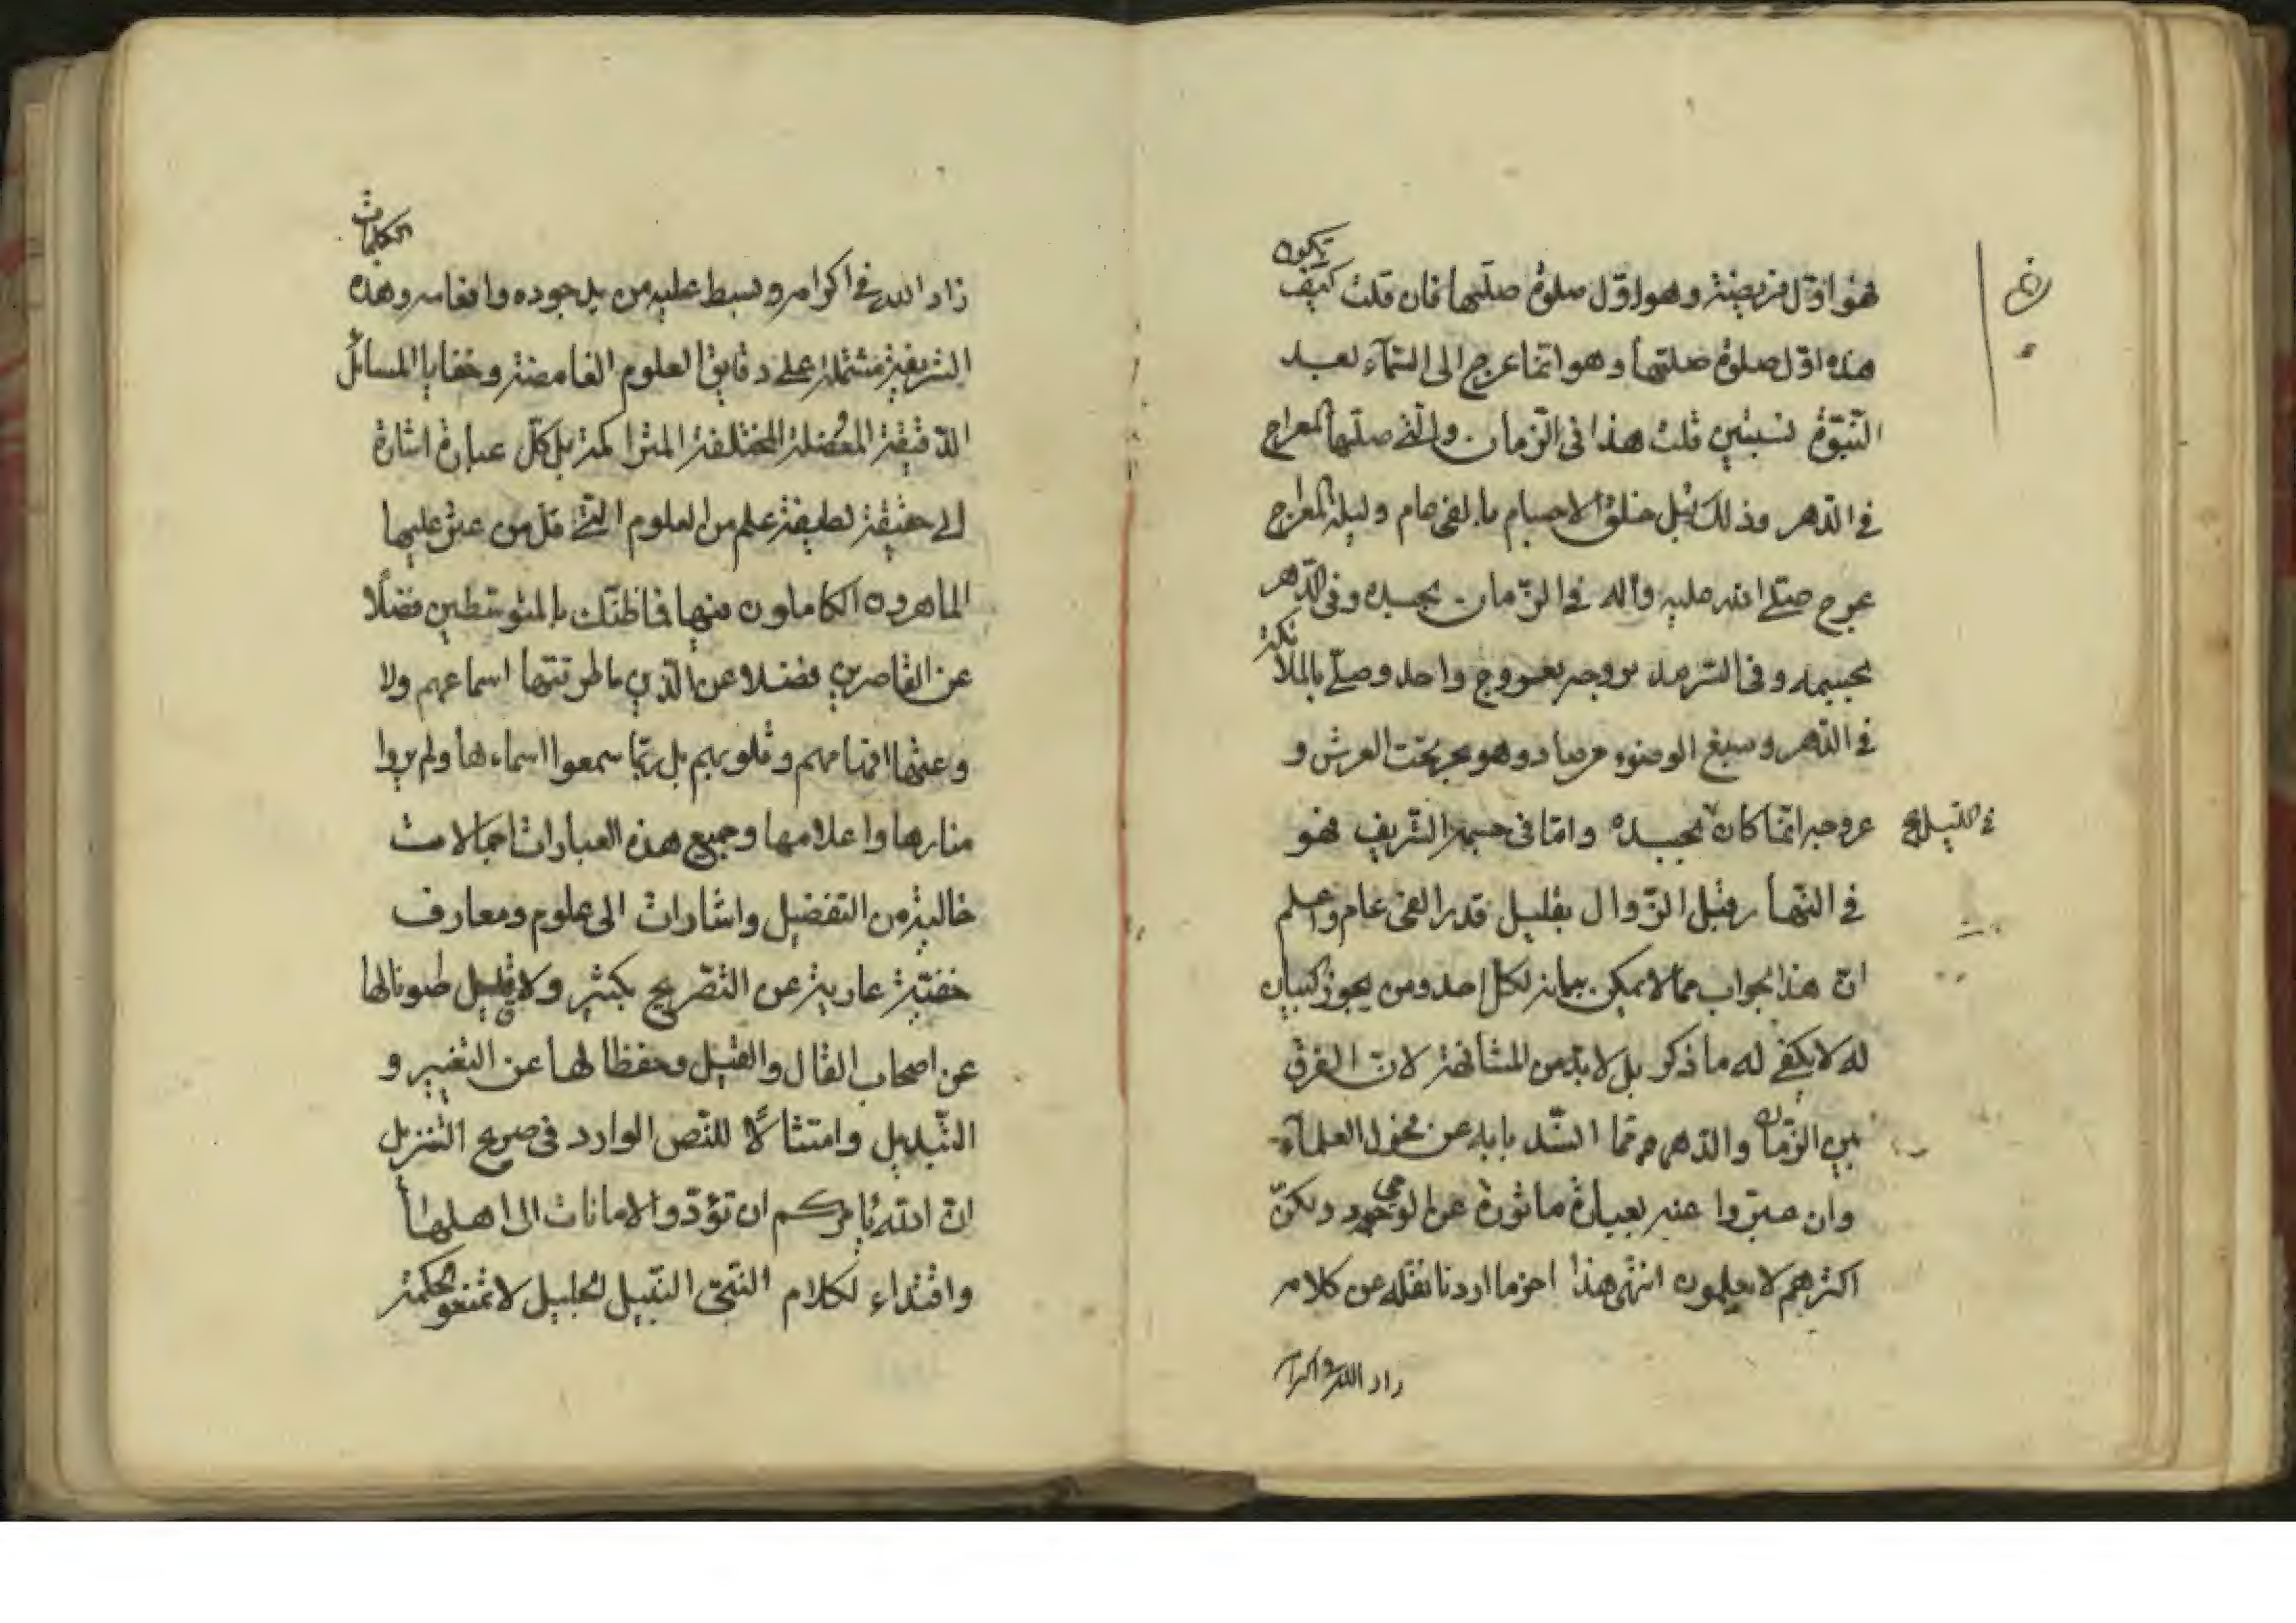 فهو اوّل فريضة وهو اوّل صلوة صلّيها فان قلت كيف تكون
هذه اوّل صلوة صلّيها وهو انّما عرج الى السّمآء بعد
النّبوّة بسنتين قلت هذا فى الزّمان والّتى صلّيها المعراج
فى الدّهر وذلك قبل خلق الاجسام بالفى عام وليلة المعراج
عرج صلّى الله عليه وآله فى الزّمان بجسده وفى الدّهر
بجسمه وفى السّرمد بروحه بعروج واحد وصلّى بالملائكة
فى الدّهر واسبغ الوضوء من صاد وهو بحر تحت العرش و
عروجه انّما كان بجسده وامّا فى جسمه الشّريف فهو
فى الليل
فى النّهار قبل الزّوال بقليل قدر الفى عام واعلم
انّ هذا الجواب ممّا لا يمكن بيانه لكلّ احد ومن يجوز البيان
له لا يكفى له ما ذكر بل لا بدّ من المشافهة لانّ الفرق
بين الزّمان والدّهر ممّا انسّد بابه عن فحول العلمآء
وان عبّروا عنه بعبارة مأثورة عن الوحى ولكنّ
اكثرهم لا يعلمون انتهى هذا اخر ما اردنا نقله عن كلامه
زاد الله فى اكرامه
زاد الله فى اكرامه وبسط عليه من يد جوده وانعامه وهذه الكلمات
الشريفة مشتملة على دقايق العلوم الغامضة وخفايا المسائل
الدّقيقة المعضلة المختلفة المتراكمة بل كلّ عبارة اشارة
الى حقيقة لطيفة علم من العلوم الّتى قلّ من عثر عليها
الماهرون الكاملون منها فما ظنّك بالمتوسّطين فضلًا
عن القاصرين فضلا عن الّذين ما طرقتها اسماعهم ولا
وعتها افهامهم وقلوبهم بل ربّما سمعوا اسماءها ولم يروا
منارها واعلامها وجميع هذه العبارات اجمالات
خالية من التفصيل واشارات الى علوم ومعارف
خفيّة عارية عن التّصريح بكثير ولا قليل صونا لها
عن اصحاب القال والقيل وحفظا لها عن التغيير و
التّبديل وامتثالًا للنّص الوارد فى صريح التنزيل
انّ الله يأمركم ان تؤدّوا الامانات الى اهلها
واقتداء لكلام النّبىّ النّبيل الجليل لا تمنعوا الحكمة